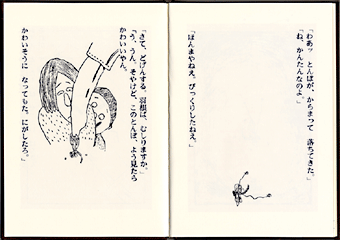 「わあッ とんぼが、からまって 落ちてきた。」
「ね、かんたんなのよ。」
「ほんまやねえ。びっくりしたねえ。」
「さて、どげんする。羽根は、むしりますか。」
「う、うん。そやけど、このとんぼ、よう見たら
かわいいやん。
かわいそうに なってもた。にがしたろ。」